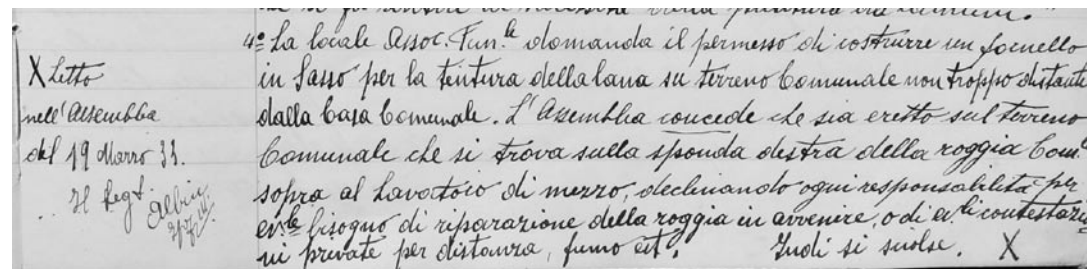 X Letto
nell'Assemblea
del 19 Marzo 33.
Il Segr.
4º La locale Assoc. Fem.le domanda il permesso di costrurre un fornello
in Sasso per la tintura della lana su terreno Comunale non troppo distante
dalla Casa Comunale. L'Assemblea concede che sia eretto sul terreno
Comunale che si trova sulla sponda destra della roggia Com.le
sopra al Lavatoio di mezzo, declinando ogni responsabilità per
ev.le bisogno di riparazione della roggia in avvenire, o di ev.li contestazi=
ni private per distanza, fumo ect. Indi si sciolse. X